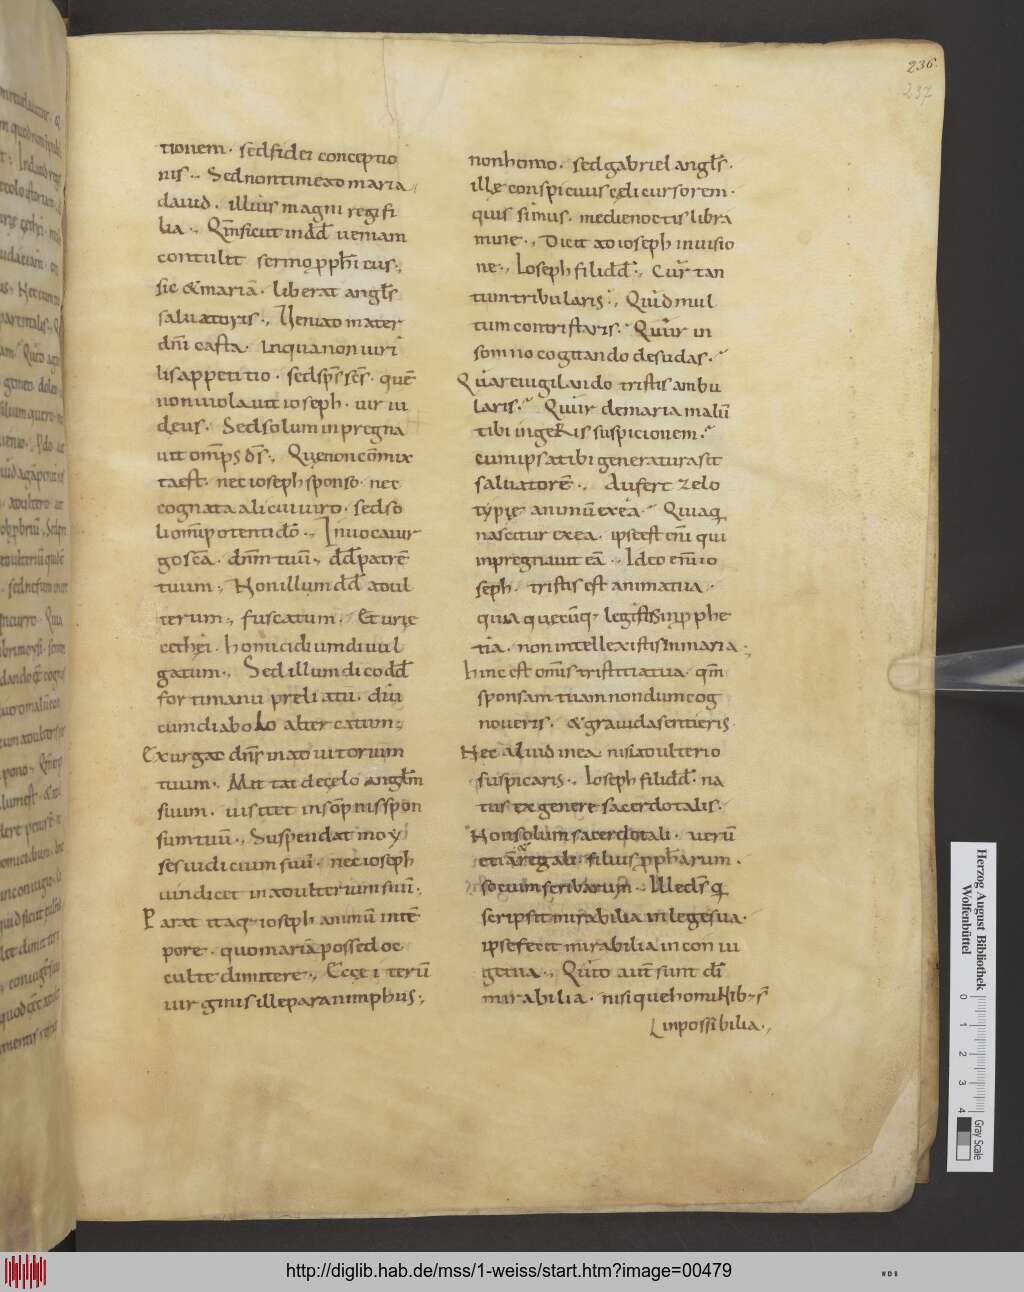 236
237
tionem · sed fidei conceptio
nis · Sed non timeat maria
dauid · illius magni regi fi
lia · Qm̄ sicut in dd̄ ueniam
contulit sermo pph̄icus ·,
sic & mariā · liberat angl̄s
saluatoris ·, Ueniat mater
dn̄i casta · In qua non uiri
lis appetitio · sed sp̄s sc̄s · quē
non uiolauit ioseph · uir iu
deus · Sed solum in pregna
uit omp̄s ds̄ ·, Que non cōmix
ta est · nec ioseph sponso · nec
cognata alicui uiro · sed so
li omīpotenti dō ·, Inuocauer
go sc̄a · dn̄m tuū ·, dd̄ patrē
tuum ·, Non illum dd̄ adul
terum ·, fuscatum · Et urie
cethei · homicidium diuul
gatum ·, Sed illum dico dd̄
forti manu preliatū · diu
cum diabolo altercatum ·,
Exurgat dn̄s in adiutorium
tuum · Mittat de celo anglm̄
suum · uisitet in somp̄nis spon
sum tuū ·, Suspendat moy
ses iudicium suū · nec ioseph
uindicet in adulterium suū ·,
Parat itaq· ioseph animū intē
pore · quo mariā possed oc
culte dimittere ·, Ecce iterū
uirginis ille paranimphus ·,
non homo · sed gabriel angl̄s ·
ille conspicuus cęli cursorem ·
quis simus · medie noctis libra
mine ·, Dicit ad ioseph in uisio
ne ·, Ioseph fili dd̄ ·, Cur tan
tum tribularis ·, Quid mul
tum contristaris · Quur in
somno cogitando desudas ·
Quare uigilando tristis ambu
laris · Quur de maria malū
tibi ingeris suspicionem ·
cum ipsa tibi generatura sit
saluatorē ·, Aufert zelo
typie animū ex ea · Quia qd
nascitur ex ea · ipse est enī qui
inpregnauit eā ·, Ideo enī io
seph · tristis est anima tua ·
quia quecūq· legisti in pphe
tia · non intellexisti in maria ·,
hinc est omis tristitia tua · qm̄
sponsam tuam nondum cog
noueris · & grauida sentieris
Nec aliud in ea nisi adulterio
suspicaris ·, Ioseph fili dd̄ · na
tus ex genere sacerdotalis ·
Non solum sacerdotali · uerū
etiā regali filius pph̄arum ·
socium scribarum · Ille ds̄ q
scripsit mirabilia in lege sua ·
ipse fecit mirabilia in coniu
ge tua ·, Quito autē sunt dī
mirabilia · nisi que hominib; s̄
inpossibilia ·,
http://diglib.hab.de/mss/1-weiss/start.htm?image=00479
Herzog August Bibliothek
Wolfenbüttel
0 1 2 3 4
Gray Scale